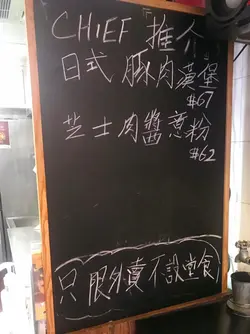 CHIEF 推介
日式豚肉漢堡
#67
芝士肉醬意粉
#62
只限外賣不設堂食